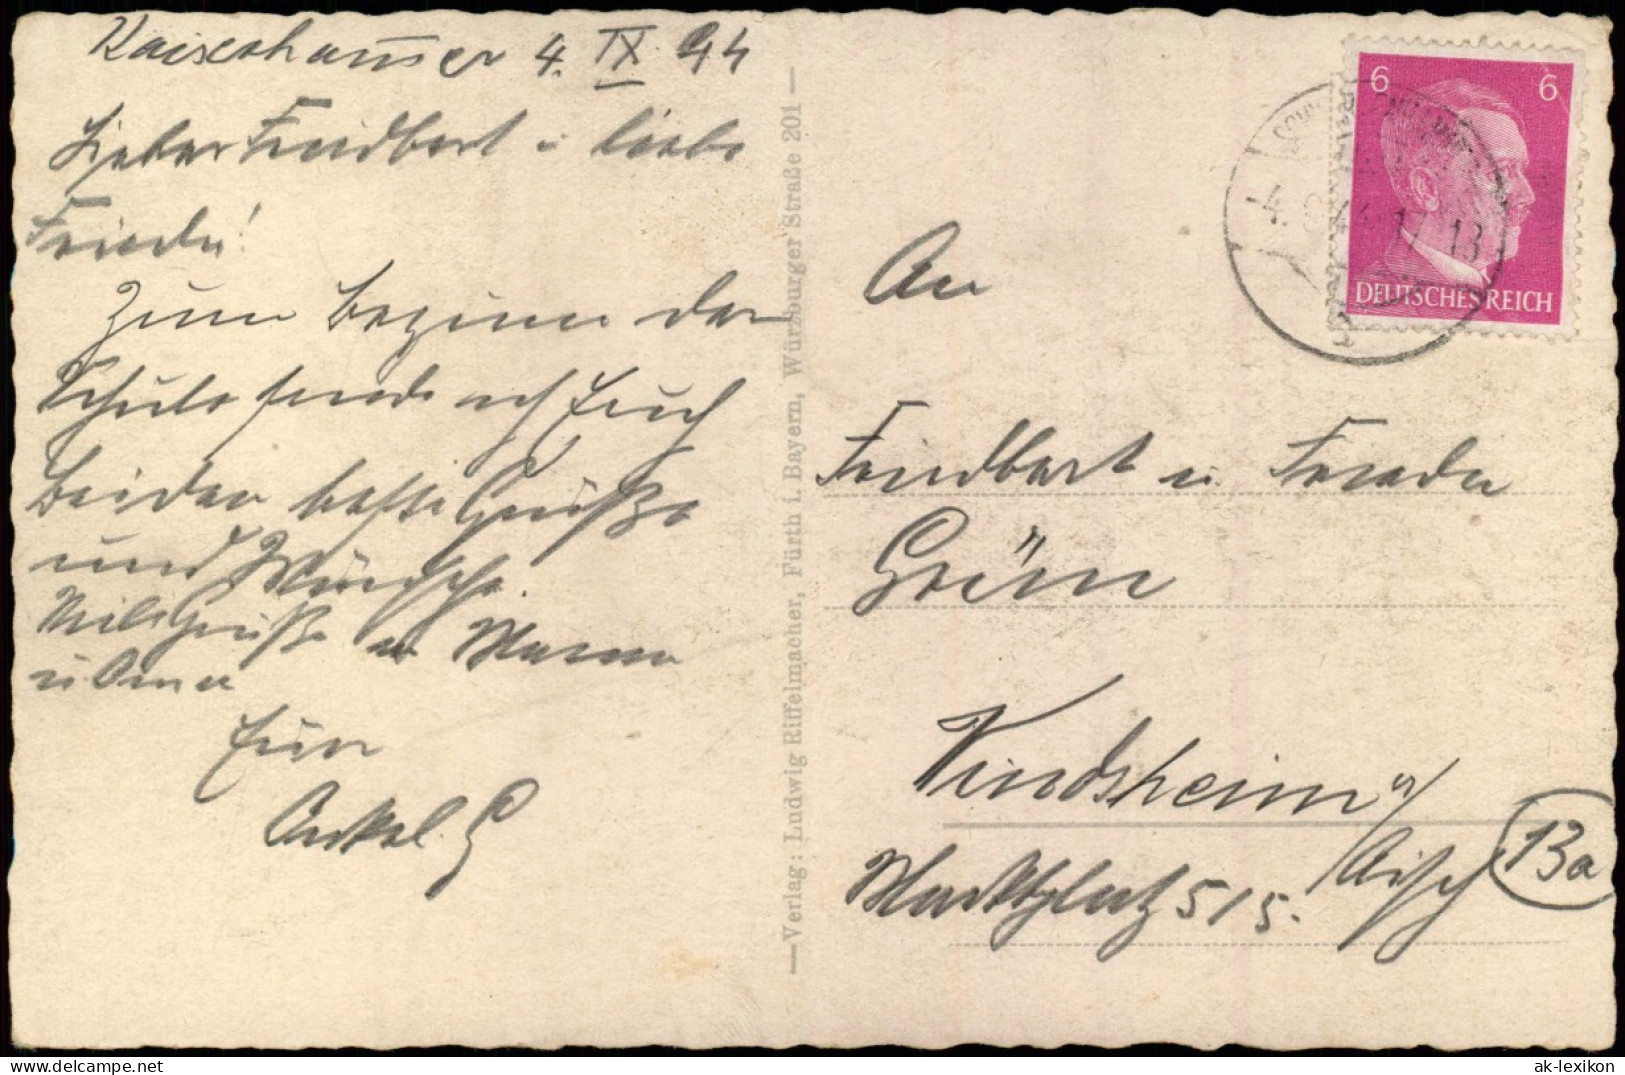 Kaisershammer 4. IX 44
Lieber Friedbert u liebe
Frieda!
Zum Beginn der
Schule sende ich Euch
beiden beste Grüße
und Wünsche.
Viele Grüße a Mama
u Oma
Euer
Onkel G
—Verlag: Ludwig Riffelmacher, Fürth i. Bayern, Würzburger Straße 201—
6 6
4. 17-18
DEUTSCHES REICH
An
Friedbert u Frieda
Grün
Windsheim a/
Aisch 13a
Marktplatz 515.
ak-lexikon